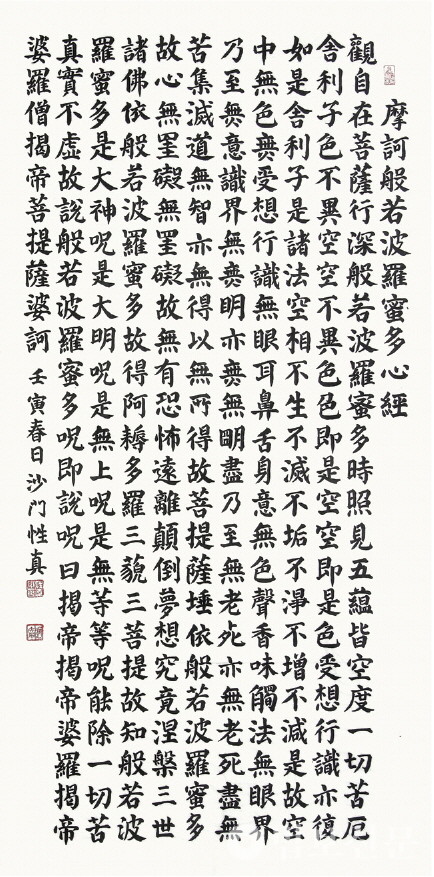 摩訶般若波羅蜜多心經
觀自在菩薩行深般若波羅蜜多時照見五蘊皆空度一切苦厄
舍利子色不異空空不異色色即是空空即是色受想行識亦復
如是舍利子是諸法空相不生不滅不垢不淨不增不減是故空
中無色無受想行識無眼耳鼻舌身意無色聲香味觸法無眼界
乃至無意識界無無明亦無無明盡乃至無老死亦無老死盡無
苦集滅道無智亦無得以無所得故菩提薩埵依般若波羅蜜多
故心無罣礙無罣礙故無有恐怖遠離顛倒夢想究竟涅槃三世
諸佛依般若波羅蜜多故得阿耨多羅三藐三菩提故知般若波
羅蜜多是大神呪是大明呪是無上呪是無等等呪能除一切苦
真實不虛故說般若波羅蜜多呪即說呪曰揭帝揭帝婆羅揭帝
婆羅僧揭帝菩提薩婆訶 壬寅春日沙門性真